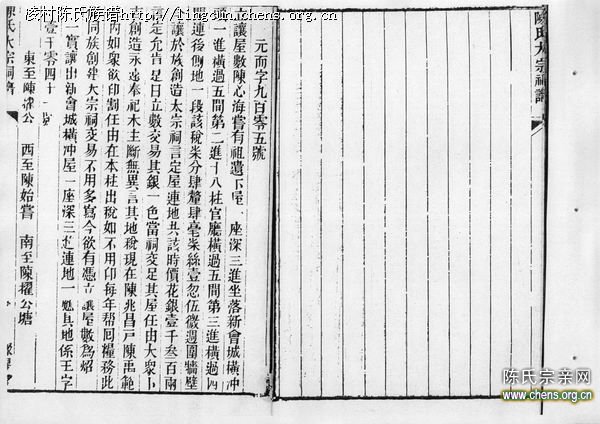 凌村陈氏族谱 - http://lingcun.chens.org.cn
陳氏大宗祠譜
元而字九百零五號
立讓屋數陳心海嘗有祖遺下屋一座深三進坐落新會城橫冲
一進橫過五間第二進十八柱官廳橫過五間第三進橫過四
間連後側地一段該稅柒分肆釐肆毫柒絲壹忽伍微週圍牆壁
讓於族創造太宗祠言定屋連地共該時價花銀壹千叁百兩
言定允肯是日立數交易其銀一色當祠交足其屋任由大衆卜
吉創造永遠奉祀木主斷無異言其地稅現在陳兆昌戶陳禹範
內如衆欲印割任由在本柱出稅如不用印每年帮囘糧務此
同族創建大宗祠交易不用多寫今欲有憑立讓屋數爲炤
一實讓出新會城橫冲屋一座深三進連地一應其地係王字
壹千零四十
東至陳濂公 西至陳始嘗 南至陳擢公塘
陳氏大宗祠譜
陈氏宗亲网
www.chens.org.cn